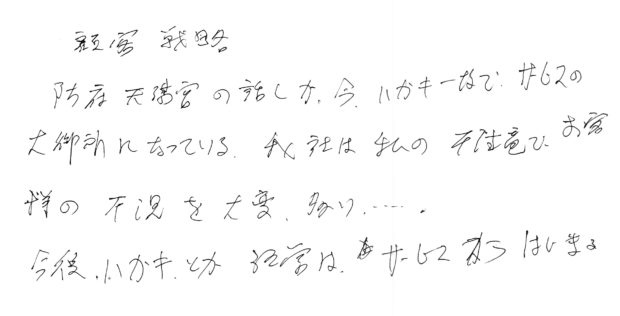 顧客戦略
防府天満宮の話しが、今、ハガキ一枚で、サービスの
大御所になっている。我社は私の不注意で、お客
様の不況を大変、多い……。
今後、ハガキとか経営は、サービスからはじまる